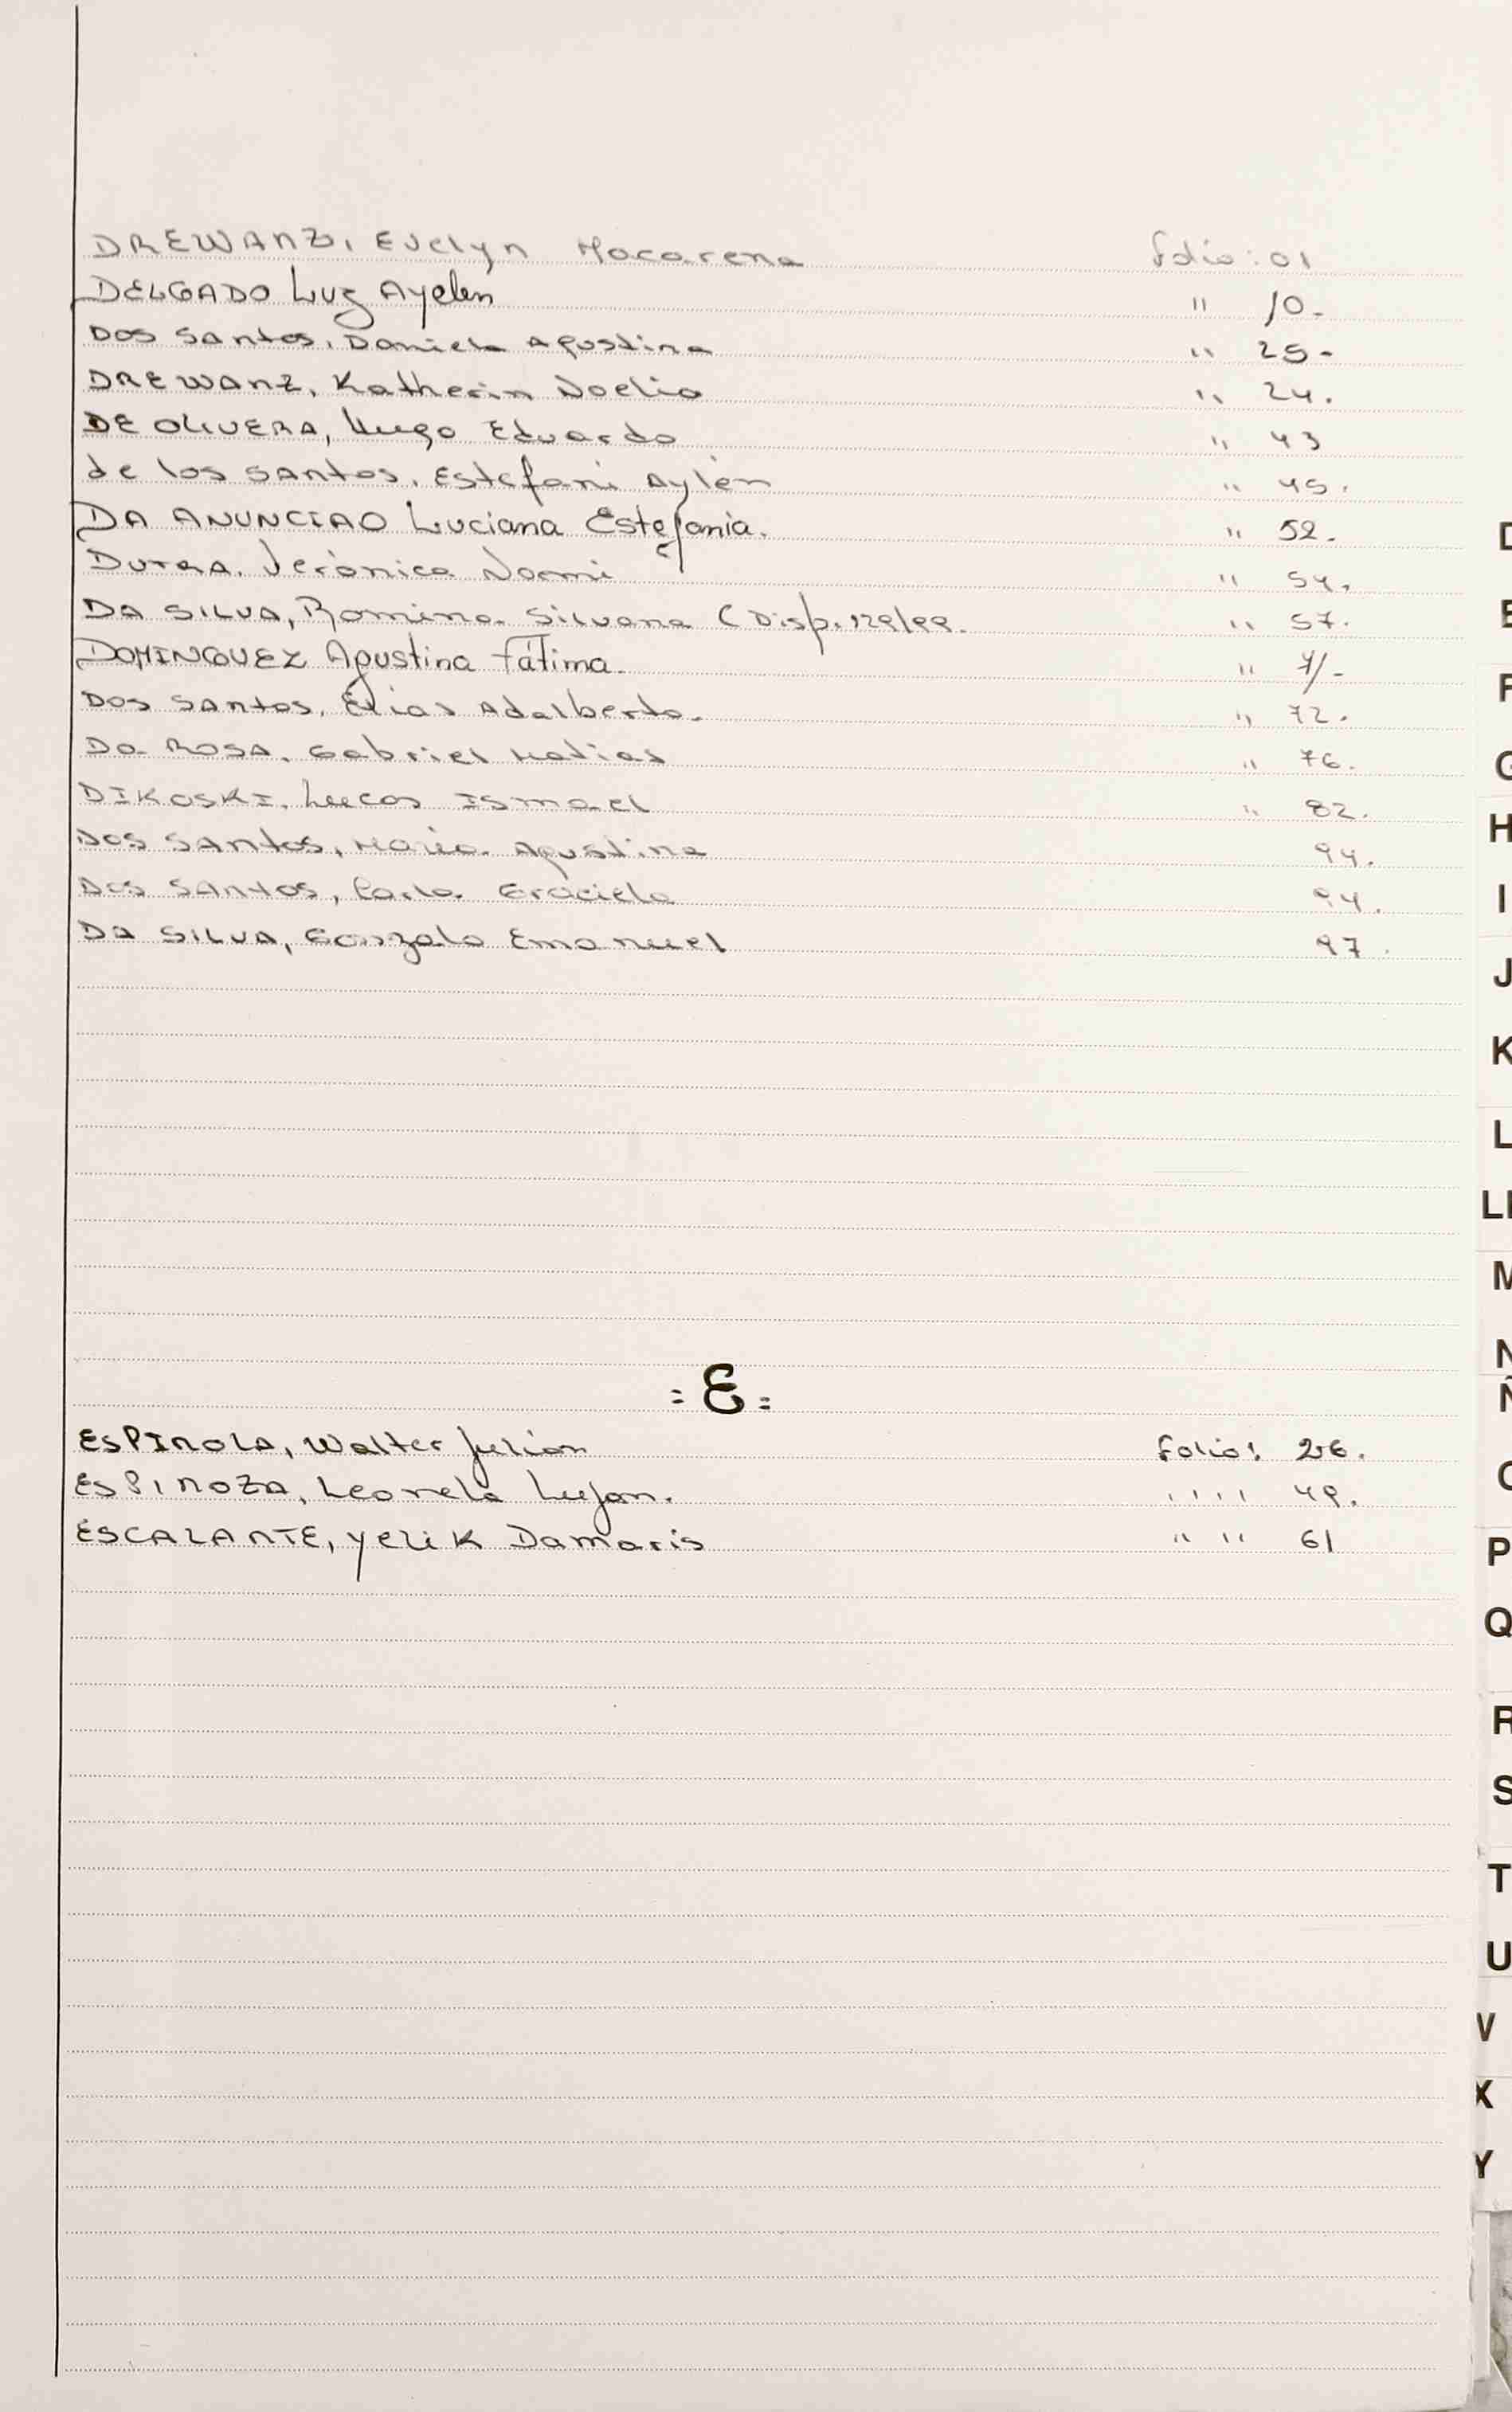 DREWANZ, Evelyn Macarena folio: 01
DELGADO Luz Ayelen " 10.-
DOS SANTOS, Daniela Agustina " 25-
DREWANZ, Katherin Noelia " 24.
DE OLIVERA, Hugo Eduardo " 43
de los SANTOS, Estefani Aylén " 45.
DA ANUNCIAO Luciana Estefania. " 52.-
DUTRA, Verónica Noemi " 54.
DA SILVA, Romina Silvana (Disp. 129/99. " 57.
DOMINGUEZ Agustina Fátima. " 71.-
DOS SANTOS, Elias Adalberto. " 72.
Da ROSA, Gabriel Matias " 76.
DIKOSKI, Lucas Ismael " 82.
DOS SANTOS, Maria Agustina 94.
DOS SANTOS, Carla Graciela 94.
DA SILVA, Gonzalo Emanuel 97.
= E =
ESPINOLA, Walter Julian folio: 26.
ESPINOZA, Leonela Lujan. " " 49.
ESCALANTE, Yelik Damaris " " 61
D
E
F
G
H
I
J
K
L
Ll
M
N
Ñ
O
P
Q
R
S
T
U
V
X
Y